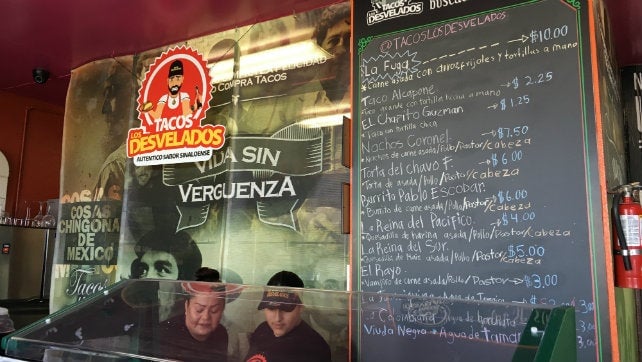 TACOS
LOS
DESVELADOS
AUTENTICO SABOR SINALOENSE
COMPRA TACOS
VIDA SIN
VERGUENZA
COSAS
CHINGONAS
DE
MEXICO
Tacos
TACOS
DESVELADOS
@TACOSLOSDESVELADOS
La Fuga $10.00
*Carne asada con arroz, frijoles y tortillas a mano
Taco Alcapone $2.25
EL Chapito Guzman $1.25
Nachos Coronel $7.50
*Nachos de carne asada/Pollo/Pastor/Cabeza
Torta del chavo F. $6.00
Torta de asada/Pollo/Pastor/Cabeza
Burrito Pablo Escobar $6.00
*Burrito de carne asada/Pollo/Pastor/Cabeza
La Reina del Pacifico $4.00
Quesadilla de harina asada/Pollo/Pastor/Cabeza
La Reina del Sur $5.00
Quesadilla de Maiz asada/Pollo/Pastor/Cabeza
El Rayo $3.00
*Vampiro de carne asada/Pollo/Pastor/Cabeza
Jamaica
Colombiana Agua de horchata
Viuda Negra Agua de